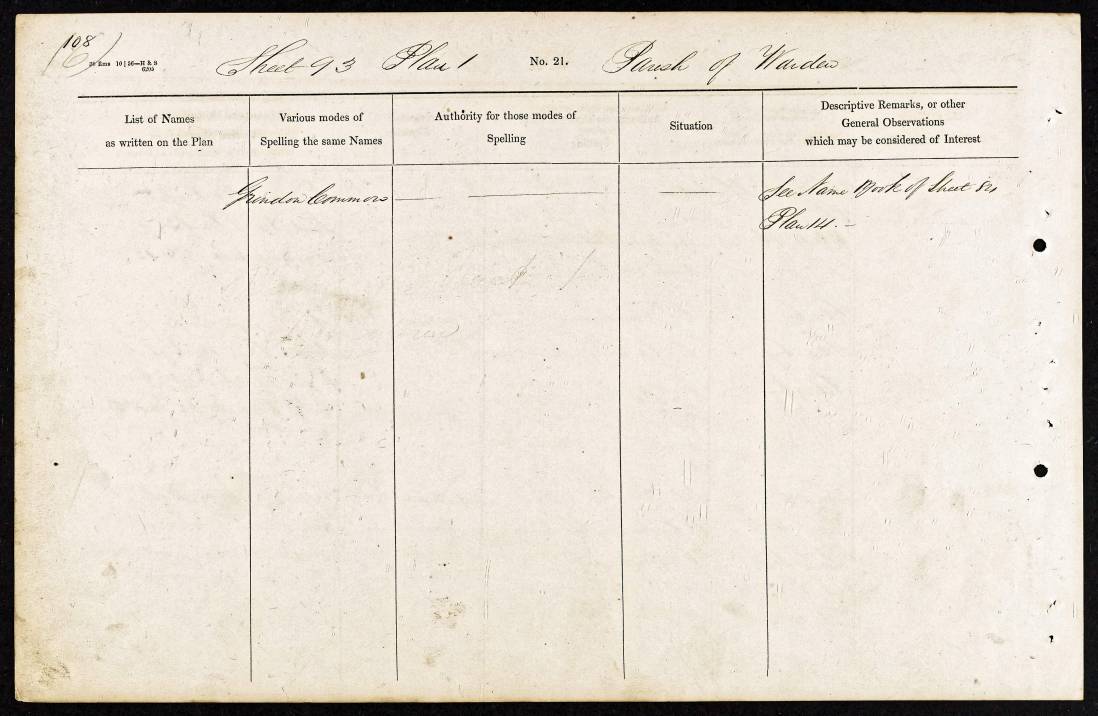 108
Sheet 93 Plan 1 No. 21. Parish of Warden
20 Rms 10 | 56—H & S
6205
List of Names
as written on the Plan
Various modes of
Spelling the same Names
Authority for those modes of
Spelling
Situation
Descriptive Remarks, or other
General Observations
which may be considered of Interest
Grindon Common — —— —— See Name Book of Sheet 84
Plan 14. –